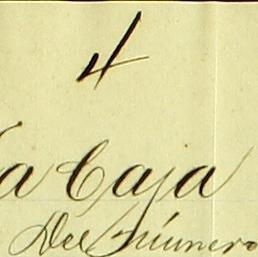 4
a Caja
Del número